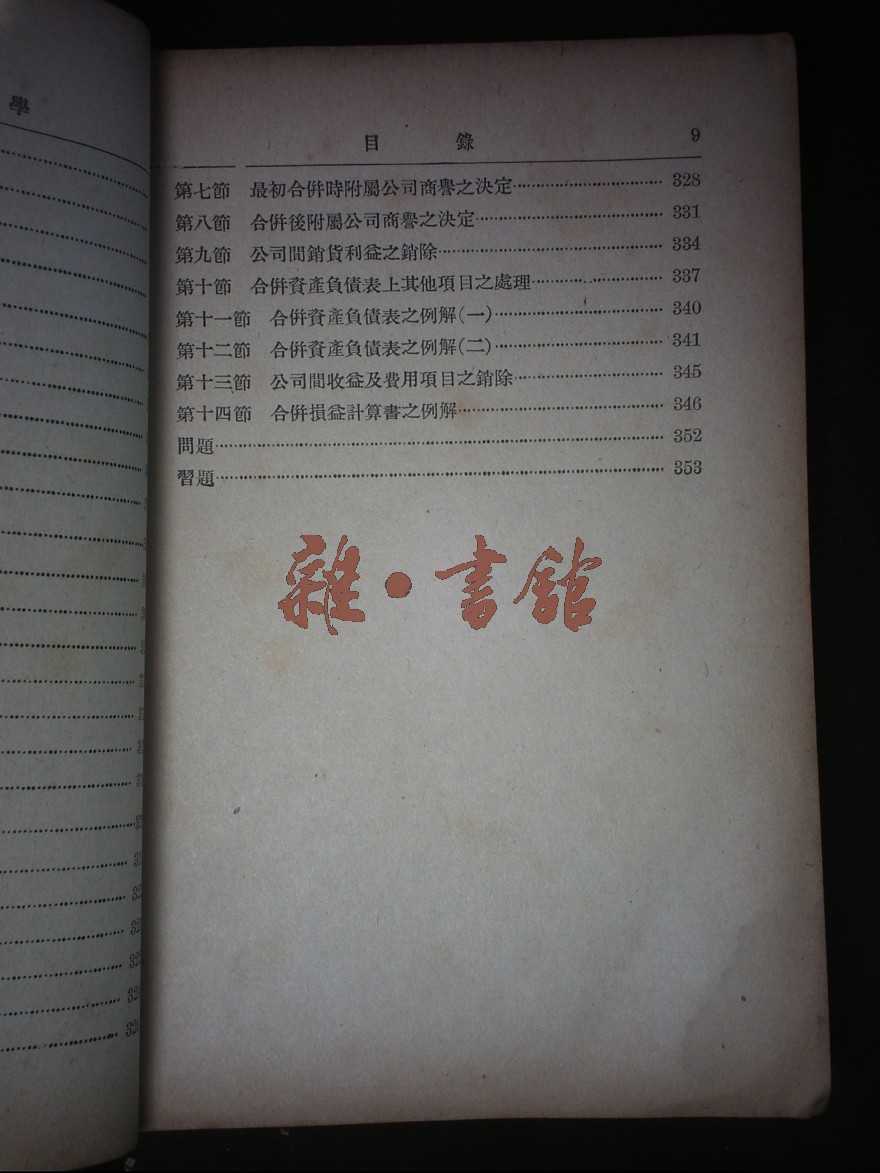 學
目 錄 9
第七節 最初合併時附屬公司商譽之決定 328
第八節 合併後附屬公司商譽之決定 331
第九節 公司間銷貨利益之銷除 334
第十節 合併資產負債表上其他項目之處理 337
第十一節 合併資產負債表之例解(一) 340
第十二節 合併資產負債表之例解(二) 341
第十三節 公司間收益及費用項目之銷除 345
第十四節 合併損益計算書之例解 346
問題 352
習題 353
雜·書館